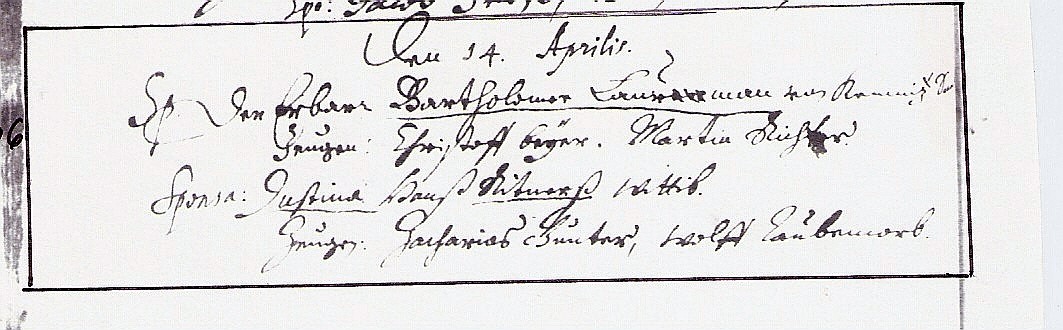 Den 14. Aprilis.
Sp. Der Erbare Bartholomee Laurman von Kemnitz
Zeugen: Christoff beÿer. Martin Richter
Sponsa: Justina Hanß Kitnerß Wittib.
Zeugen: Zacharias Gunter, Wolff Laubemorb.